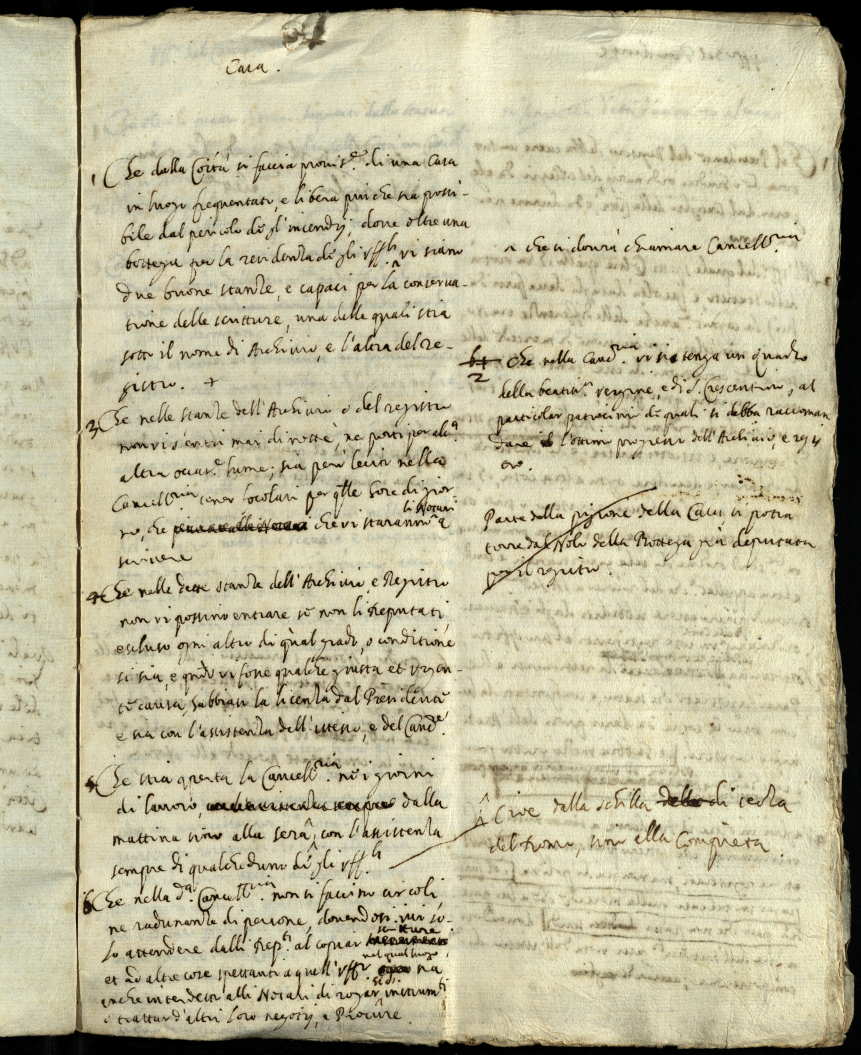 Casa.
1 Che dalla Città si faccia provis.e di una Casa
in luogo frequentato, e libera più che sia possi-
bile dal pericolo degl'incendij dove oltre una
bottega per la residenza degli uff.li ^ vi siano
due buone stanze, e capaci per la conserva-
tione delle scritture, una delle quali stia
sotto il nome di Archivio, e l'altra del re-
gistro. +
3 Che nelle stanze dell'Archivio o del registro
non vi s'entri mai di notte, ne porti per alc.a
altra occas.e lume; sia però lecito nella
Cancell.ria tener focolari per q.lle hore di gior
no, che li Notari che vi staranno a
scrivere
4 Che nelle dette stanze dell'Archivio e Registro
non vi possino entrare se non li Deputati
escluso ogni altro di qual grado, o conditione
si sia, e q.ndo vi fosse qualche giusta et urgen-
te causa, habbiasi la licenza dal Presidente
e sia con l'assistenza dell'istesso, e del Canc.re
5 Che stia aperta la Cancell.ria ne i giorni
di lavoro, dalla
mattina sino alla sera ^, con l'assistenza
sempre di qualcheduno degli uff.li
6 Che nella d.a Cancell.ria non si faccino circoli
ne radunanze di persone, dovendosi ivi so-
lo attendere dalli Dep.ti al copiar scritture
et ad altre cose spettanti a quell'uff.o nel qual luogo sia
anche interdetto alli Notari di rogar instrum.ti
o trattar d'altri loro negotij, e Procure.
^ che si dovrà chiamare Cancell.ria
b+
2 Che nella Canc.ria vi si tenga un quadro
della beatiss.a vergine, e di S. Crescentino, al
particolar patrocinio di quali si debba raccoman
dare l'ottimi progressi dell'Archivio, e regis
tro.
Parte della pigione della Casa si potrà
torre dal Nolo della Bottega già deputata
per il registro.
^ Cioè dalla squilla delle di
del Domo, sino alla Compieta.